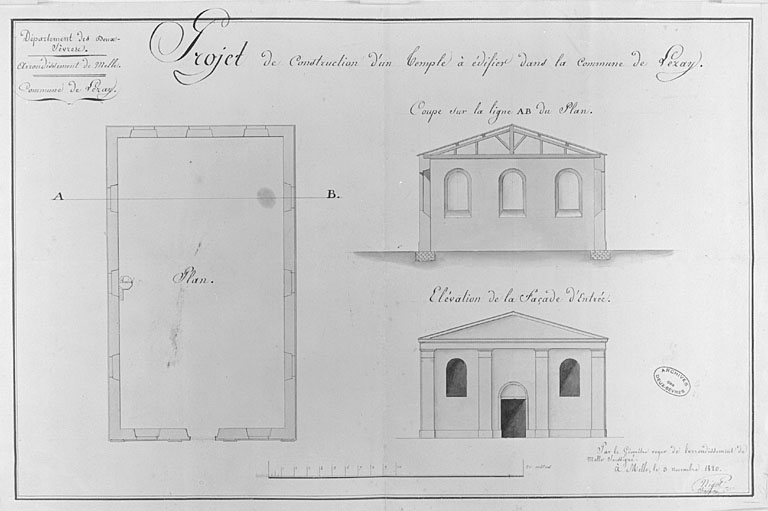 Département des Deux-
Sèvres.
Arrondissement de Melle.
Commune de Lézay.
Projet de Construction d'un Temple à édifier dans la Commune de Lézay.
Coupe sur la ligne AB du Plan.
A
B.
Plan.
Elévation de la Façade d'Entrée.
ARCHIVES
DES
DEUX-SÈVRES
Par le Géomètre voyer de l'arrondissement de
Melle Soussigné.
A Melle, le 3 novembre 1820.